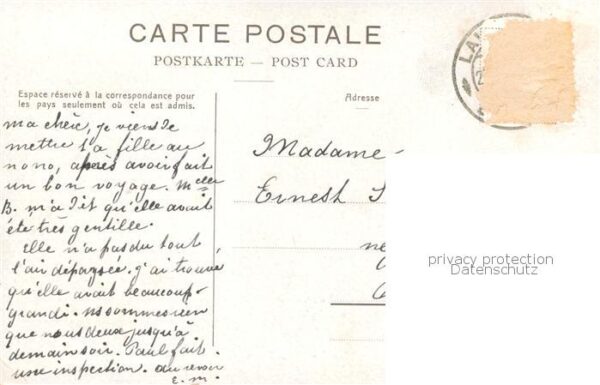 CARTE POSTALE
POSTKARTE — POST CARD
Espace réservé à la correspondance pour
les pays seulement où cela est admis.
Adresse
LA
ma chère, je viens de
mettre ta fille au
nono, après avoir fait
un bon voyage. Melle
B. m'a dit qu'elle avait
été très gentille.
Elle n'a pas du tout
l'air dépaysée. j'ai trouvé
qu'elle avait beaucoup
grandi. ns sommes rien
que nous deux jusqu'à
demain soir. Paul fait
une inspection. au revoir
E. M.
Madame
Ernest
privacy protection
Datenschutz